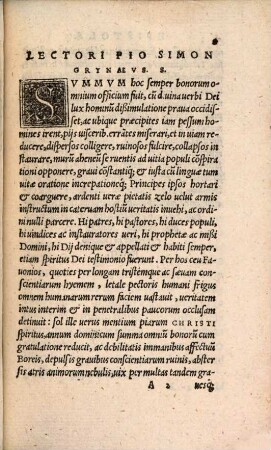 LECTORI PIO SIMON
GRYNAEVS. S.
SVMMVM hoc semper bonorum o-
mnium officium fuit, cũ diuina uerbi Dei
lux hominũ dißimulatione praua occidis-
set, ac ubique præcipites iam pessum ho-
mines irent, pijs uiscerib. errãtes miserari, et in uiam re-
ducere, dispersos colligere, ruinosos fulcire, collapsos in
staurare, murũ aheneũ se ruentis ad uitia populi cõspira
tioni opponere, graui cõstantiq; & iusta cũ linguæ tum
uitæ oratione increpationeq; Principes ipsos hortari
& coarguere, ardenti ueræ pietatis zelo uclut armis
instructũ in cateruam hostiũ ueritatis inuehi, ac ordi-
ni nulli parcere. Hi patres, hi pastores, hi duces populi,
hi uindices ac instauratores ueri, hi prophetæ ac mißi
Domini, hi Dij denique & appellati & habiti semper,
etiam spiritus Dei testimonio fuerunt. Per hos ceu Fa-
uonios, quoties per longam tristémque ac sæuam con-
scientiarum hyemem, letale pectoris humani frigus
omnem humanarum rerum faciem uastauit, ueritatem
intus interim & in penetralibus paucorum occlusam
detinuit: sol ille uerus mentium piarum CHRISTI
spiritus, annum dominicum summa omniũ bonorũ cum
gratulatione reducit, ac debilitatis immanibus affectuũ
Boreis, depulsis grauibus conscientiarum ruinis, abster
sis atris animorum nebulis, uix per multas tandem gra-
A 2 uesq;